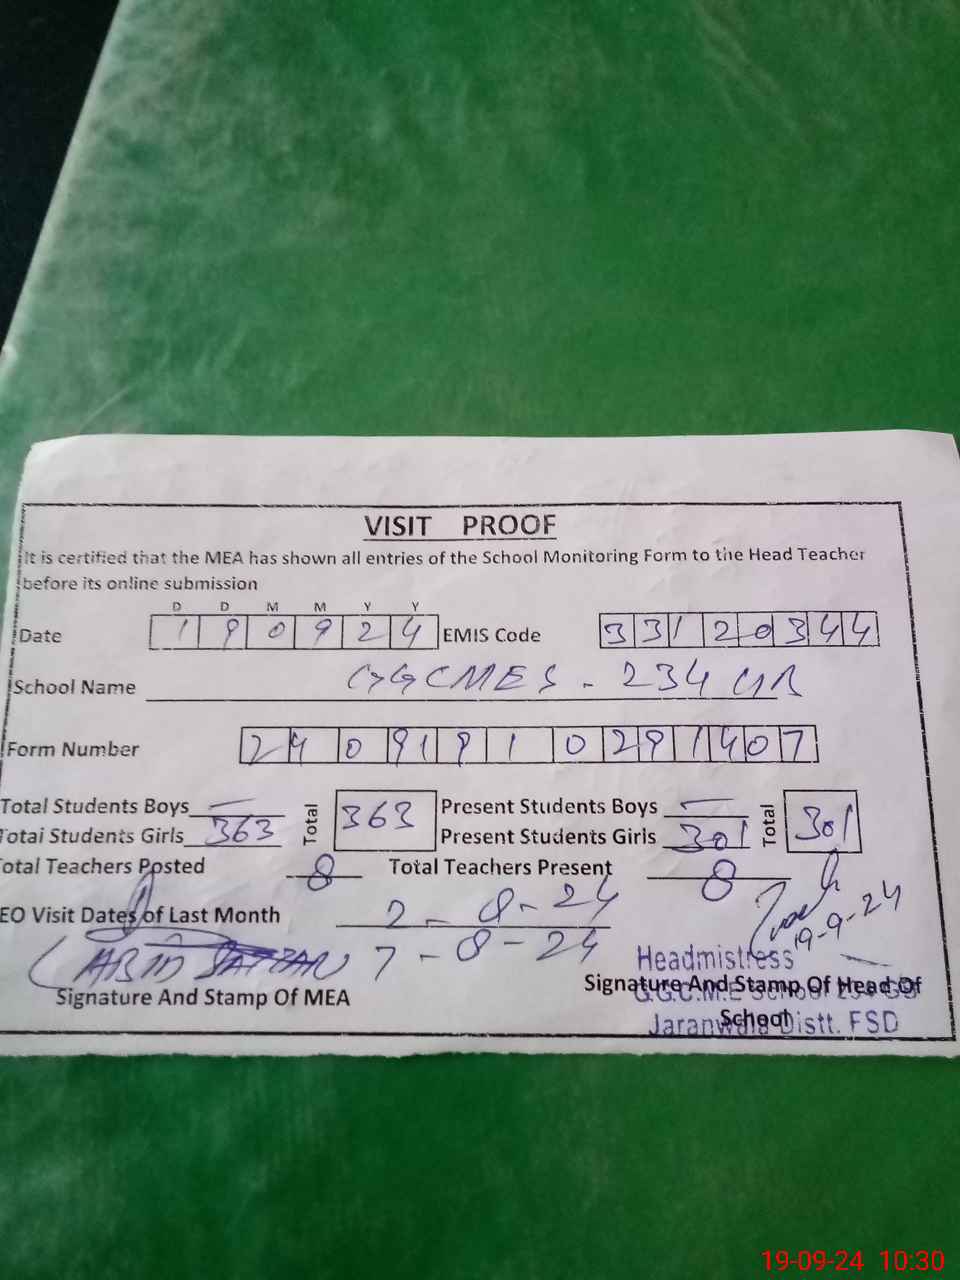 VISIT PROOF
It is certified that the MEA has shown all entries of the School Monitoring Form to the Head Teacher
before its online submission
D D M M Y Y
Date 190924 EMIS Code 33120344
School Name GGCMES - 234 GB
Form Number 24091910291407
Total Students Boys — Total 363 Present Students Boys — Total 301
Total Students Girls 363 Present Students Girls 301
Total Teachers Posted 8 Total Teachers Present 8
EO Visit Dates of Last Month 2-8-24
7-8-24
19-9-24
ABID
Headmistress
Signature And Stamp Of MEA
Signature And Stamp Of Head Of
School
G.G.C.M.E School 234 GB
Jaranwala Distt. FSD
19-09-24 10:30